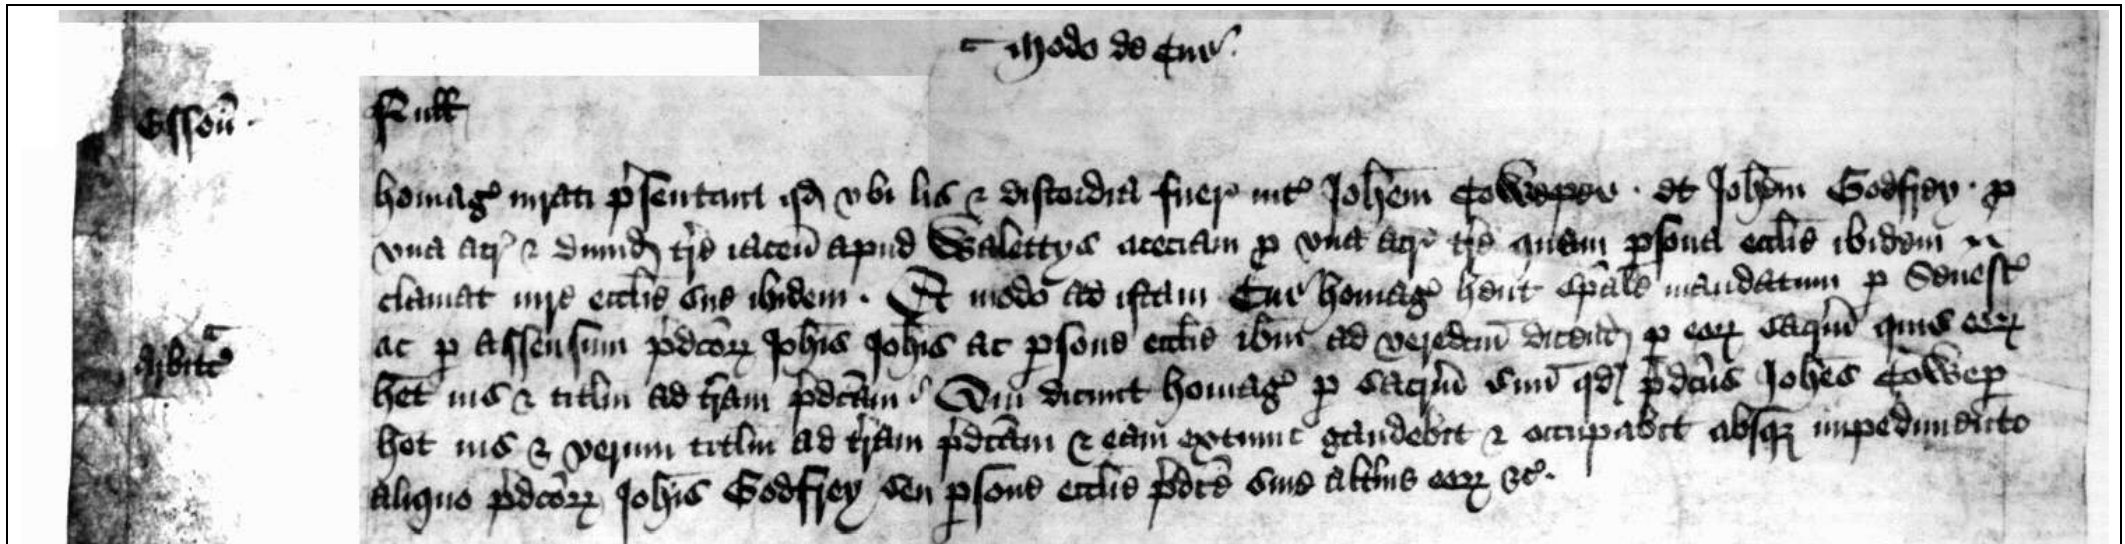 Modo de Cur'
Esson'
Null'
homag' iurati p'sentant qd' vbi lis & discordia fuer' int' Joh'em Cowper . et Joh'em Godfrey . p
vna acr' & dimid' t're iacen' apud Walettys aceciam p vna acr' t're quam p'sona eccl'ie ibidem
clamat iure eccl'ie sue ibidem . Et modo ad istam Cur' homag' h'ent sp'ale mandatum p Senesc'
Arbitr'
ac p assensum p'dcor' Joh'is Joh'is ac p'sone eccl'ie ib'm ad veredcm' dicend' p eor' sacr'm quis eor'
h'et ius & titlm ad t'ram p'dcam Qui dicunt homag' p sacr'm suu' qd' p'dcus Joh'es Cowper
h'et ius & verum titlm ad t'ram p'dcam & eam extunc gaudebit & occupabit absq' impedimento
aliquo p'dcor' Joh'is Godfrey seu p'sone eccl'ie p'dce siue alt'ius eor' &c'.